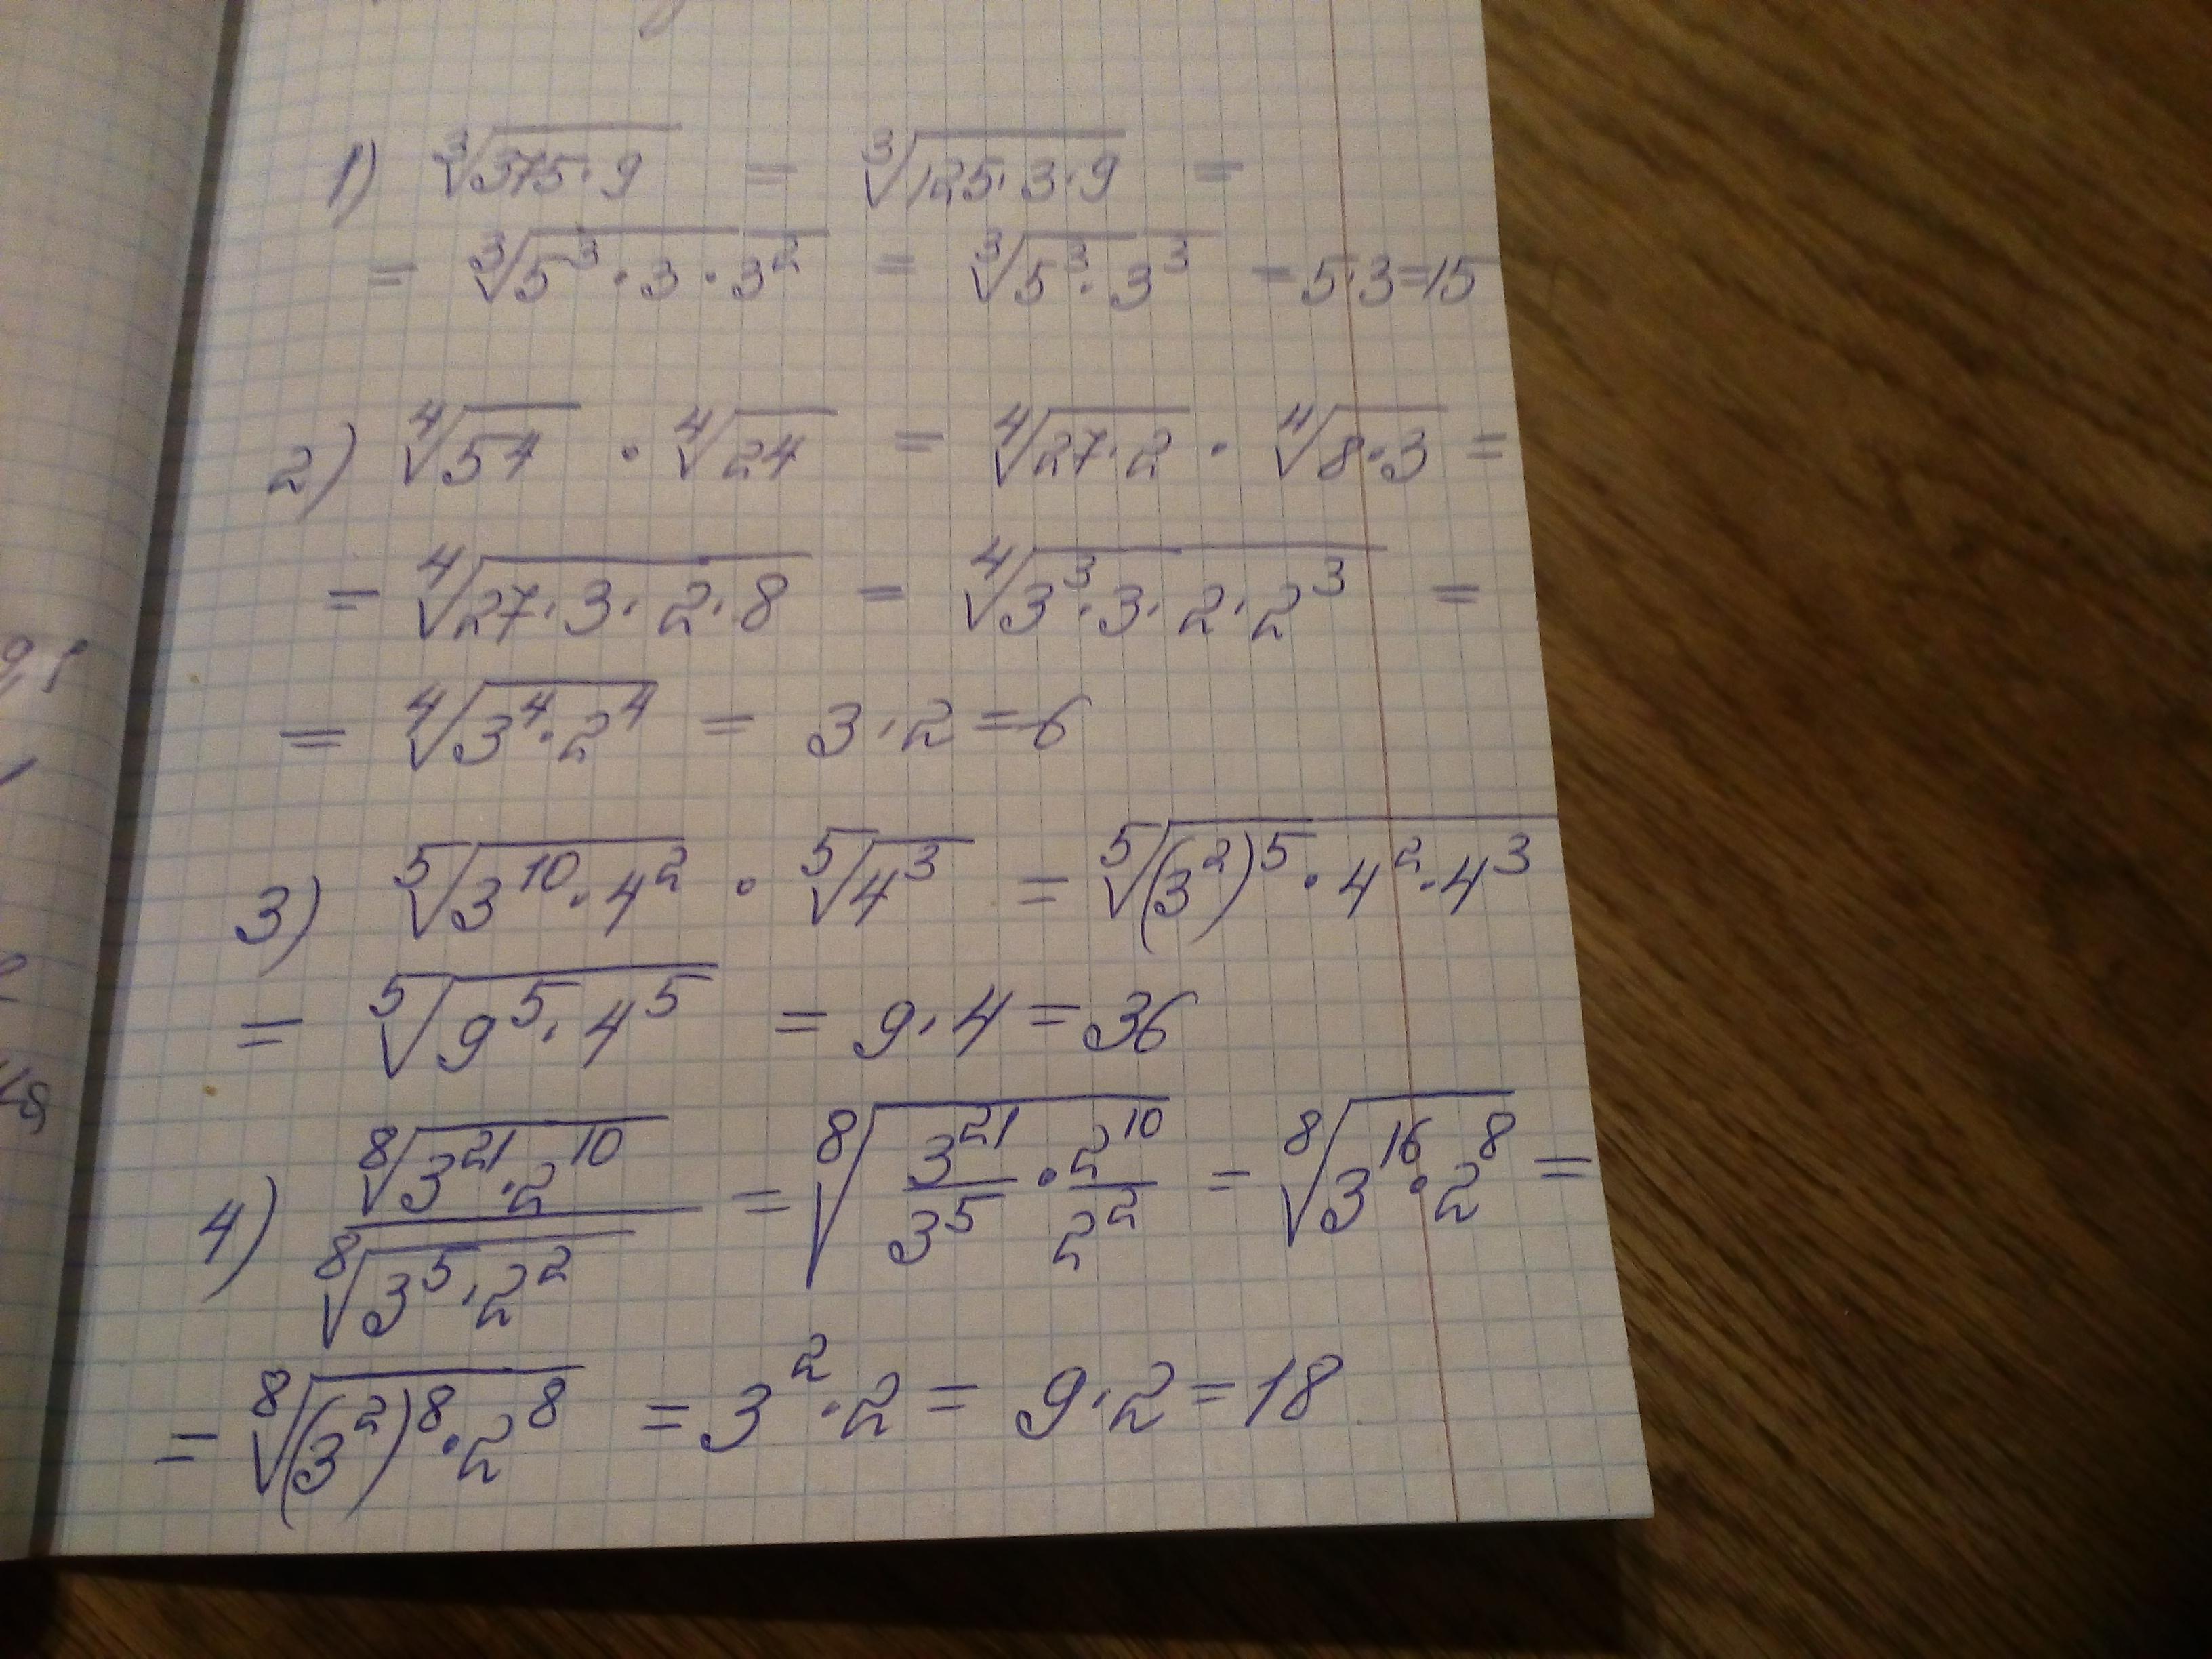 1) ∛(375·9) = ∛(125·3·9) =
= ∛(5³·3·3²) = ∛(5³·3³) = 5·3=15
2) ∜54 · ∜24 = ∜(27·2) · ∜(8·3) =
= ∜(27·3·2·8) = ∜(3³·3·2·2³) =
= ∜(3⁴·2⁴) = 3·2=6
3) ⁵√(3¹⁰·4²) · ⁵√(4³) = ⁵√((3²)⁵·4²·4³)
= ⁵√(9⁵·4⁵) = 9·4=36
4) ⁸√(3²¹·2¹⁰) / ⁸√(3⁵·2²) = ⁸√(3²¹/3⁵ · 2¹⁰/2²) = ⁸√(3¹⁶·2⁸) =
= ⁸√((3²)⁸·2⁸) = 3²·2 = 9·2=18